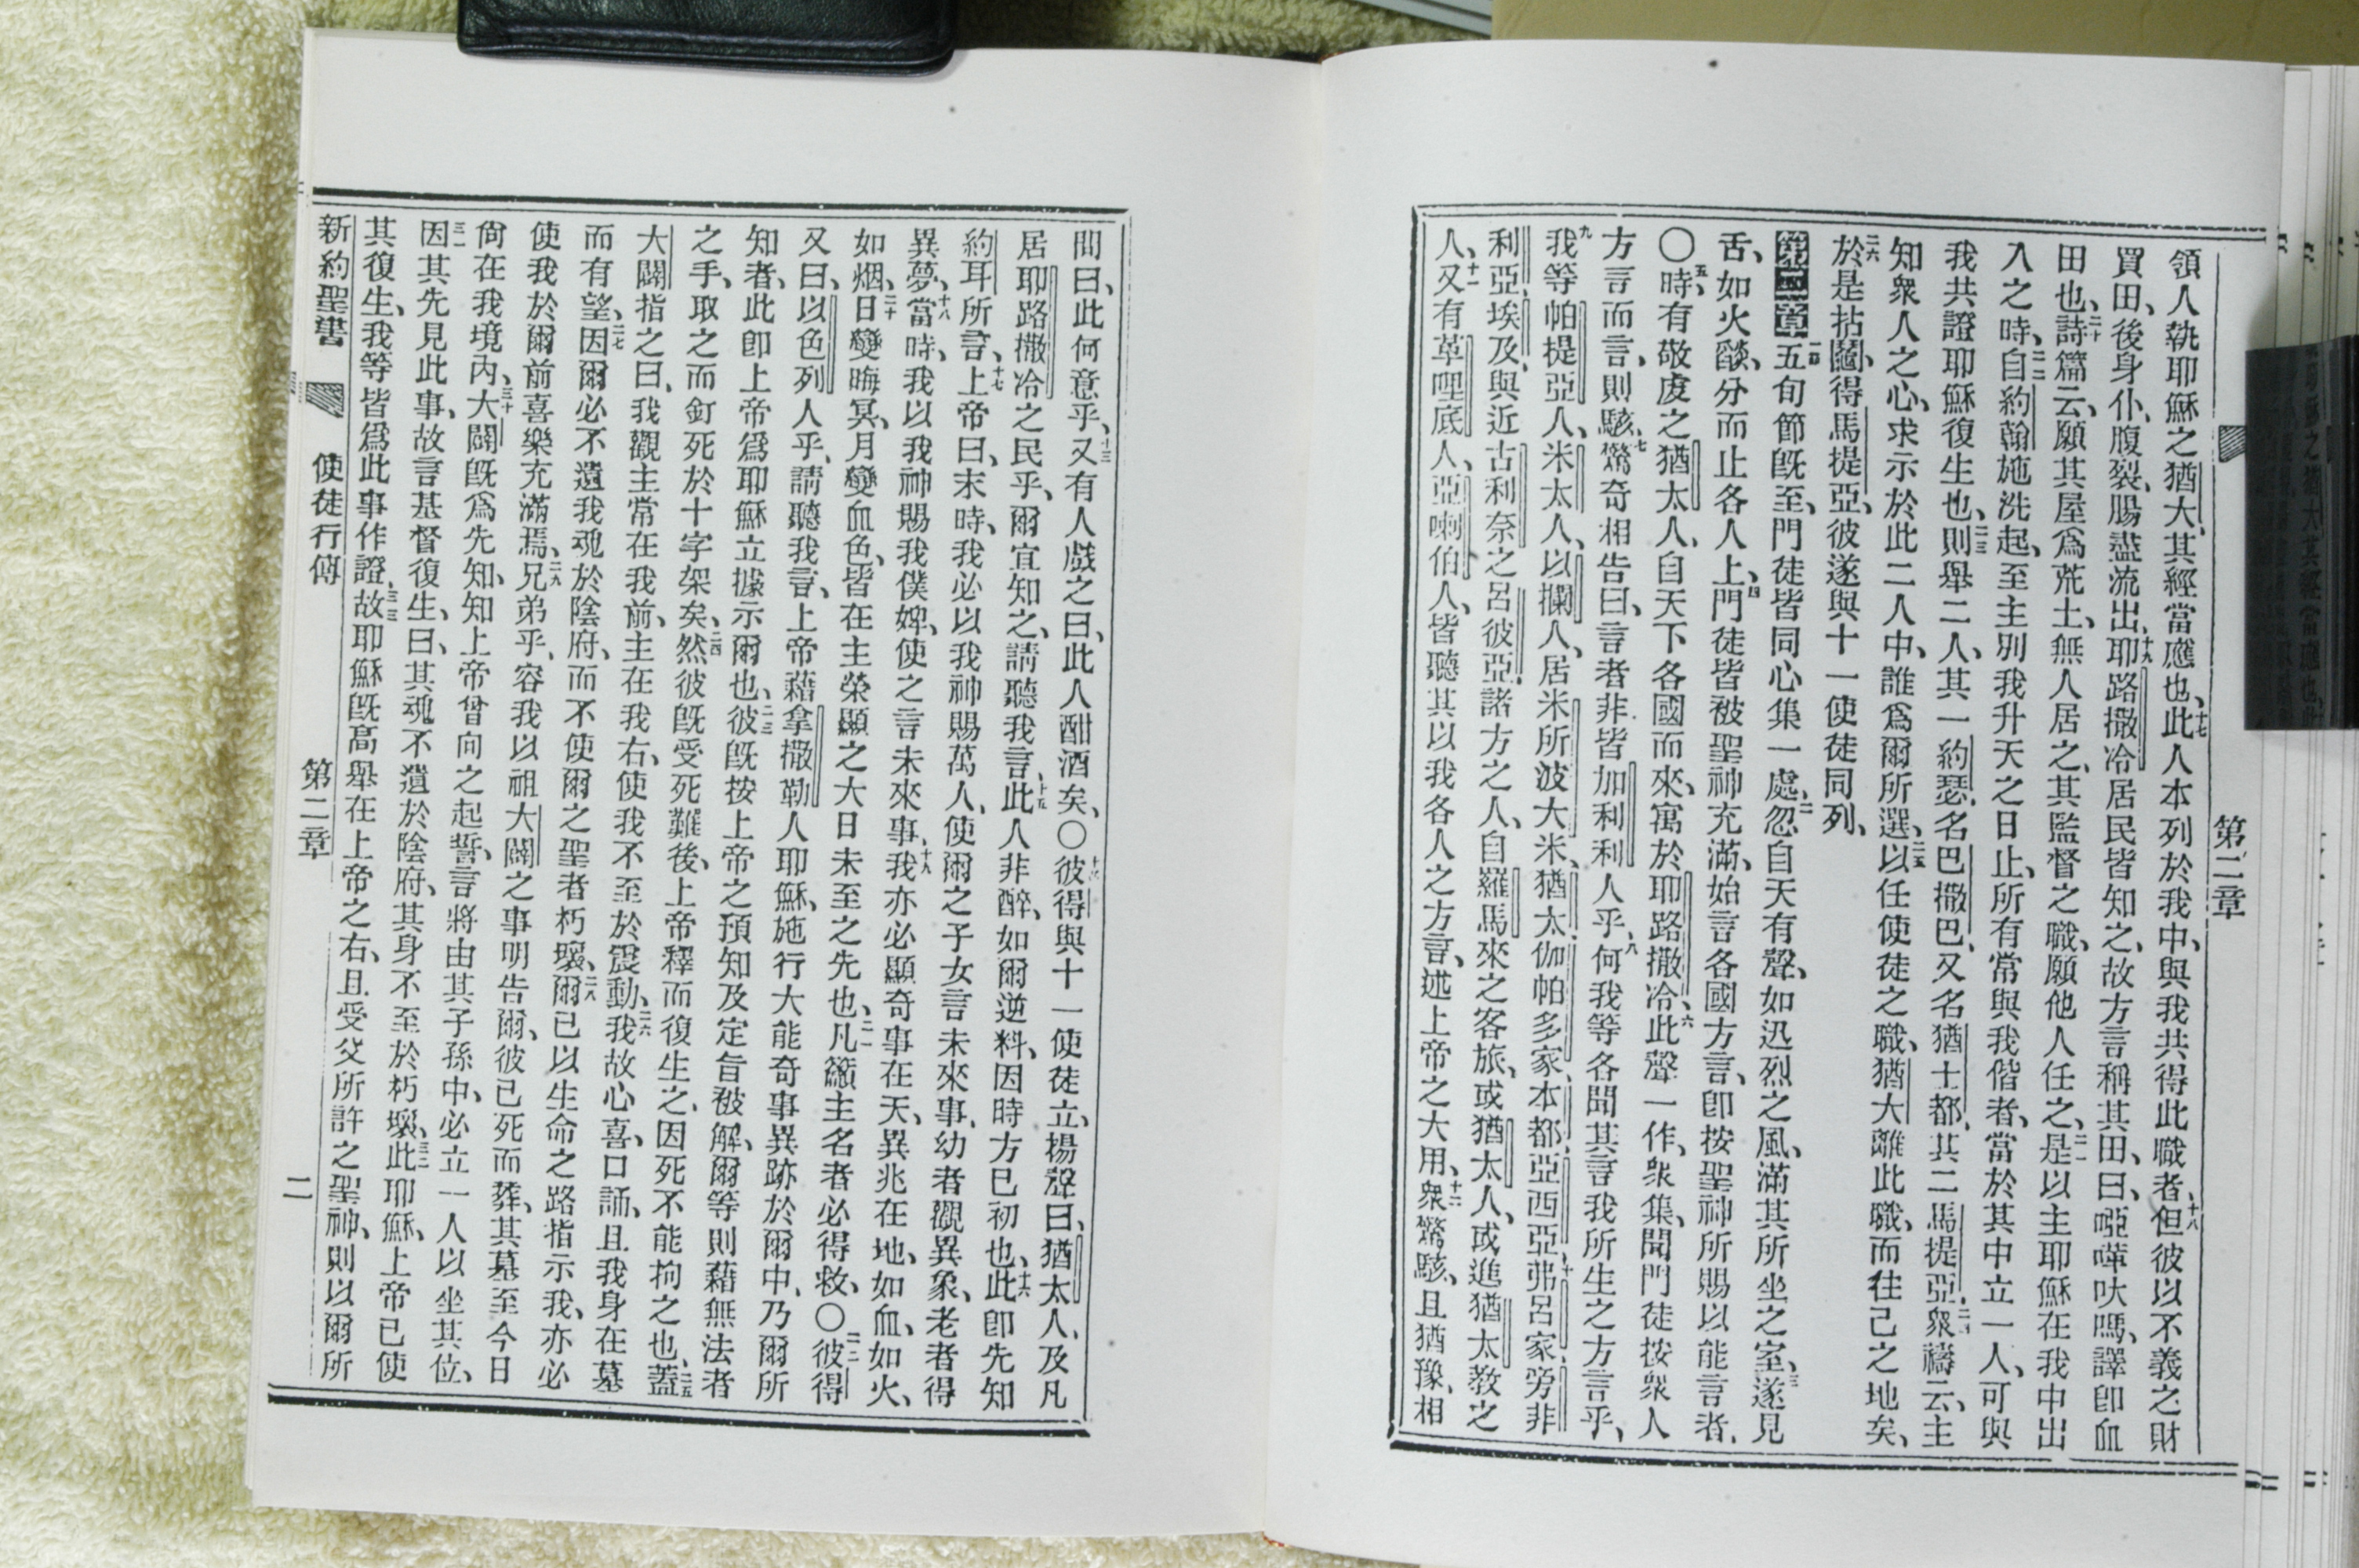 第二章
領人執耶穌之猶大、其經當應也、十七此人本列於我中、與我共得此職者、十八但彼以不義之財
買田、後身仆、腹裂、腸盡流出、十九耶路撒冷居民皆知之、故方言稱其田曰、啞嗶吠嗎、譯卽血
田也、二十詩篇云、願其屋爲荒土、無人居之、其監督之職、願他人任之、二一是以主耶穌在我中出
入之時、二二自約翰施洗起、至主別我升天之日止、所有常與我偕者、當於其中立一人、可與
我共證耶穌復生也、二三則舉二人、其一約瑟、名巴撒巴、又名猶士都、其二馬提亞、二四衆禱云、主
知衆人之心、求示於此二人中、誰爲爾所選、二五以任使徒之職、猶大離此職、而往己之地矣、
二六於是拈鬮、得馬提亞、彼遂與十一使徒同列、
第二章 一五旬節旣至、門徒皆同心集一處、二忽自天有聲、如迅烈之風、滿其所坐之室、三遂見
舌、如火燄、分而止各人上、四門徒皆被聖神充滿、始言各國方言、卽按聖神所賜以能言者、
〇五時、有敬虔之猶太人、自天下各國而來、寓於耶路撒冷、六此聲一作、衆集、聞門徒按衆人
方言而言、則駭、七驚奇相告曰、言者非皆加利利人乎、八何我等各聞其言我所生之方言乎、
九我等帕提亞人、米太人、以攔人、居米所波大米、猶太、伽帕多家、本都、亞西亞、十弗呂家、旁非
利亞、埃及、與近古利奈之呂彼亞、諸方之人、自羅馬來之客旅、或猶太人、或進猶太教之
人、十一又有革哩底人、亞喇伯人、皆聽其以我各人之方言、述上帝之大用、十二衆驚駭、且猶豫、相
問曰、此何意乎、十三又有人戲之曰、此人酣酒矣、〇十四彼得與十一使徒立、揚聲曰、猶太人、及凡
居耶路撒冷之民乎、爾宜知之、請聽我言、十五此人非醉、如爾逆料、因時方巳初也、十六此卽先知
約耳所言、十七上帝曰、末時、我必以我神賜萬人、使爾之子女言未來事、幼者觀異象、老者得
異夢、十八當時、我以我神賜我僕婢、使之言未來事、十九我亦必顯奇事在天、異兆在地、如血、如火、
如烟、二十日變晦冥、月變血色、皆在主榮顯之大日未至之先也、二一凡籲主名者必得救、〇二二彼得
又曰、以色列人乎、請聽我言、上帝藉拿撒勒人耶穌、施行大能奇事異跡於爾中、乃爾所
知者、此卽上帝爲耶穌立據示爾也、二三彼旣按上帝之預知及定旨被解、爾等則藉無法者
之手、取之而釘死於十字架矣、二四然彼旣受死難後、上帝釋而復生之、因死不能拘之也、二五蓋
大闢指之曰、我觀主常在我前、主在我右、使我不至於震動、二六我故心喜、口誦、且我身在墓
而有望、二七因爾必不遺我魂於陰府、而不使爾之聖者朽壞、二八爾已以生命之路指示我、亦必
使我於爾前喜樂充滿焉、二九兄弟乎、容我以祖大闢之事明告爾、彼已死而葬、其墓至今日
尙在我境內、三十大闢旣爲先知、知上帝曾向之起誓、言將由其子孫中、必立一人以坐其位、
三一因其先見此事、故言基督復生、曰、其魂不遺於陰府、其身不至於朽壞、三二此耶穌、上帝已使
其復生、我等皆爲此事作證、三三故耶穌旣高舉在上帝之右、且受父所許之聖神、則以爾所
新約聖書 使徒行傳 第二章 二